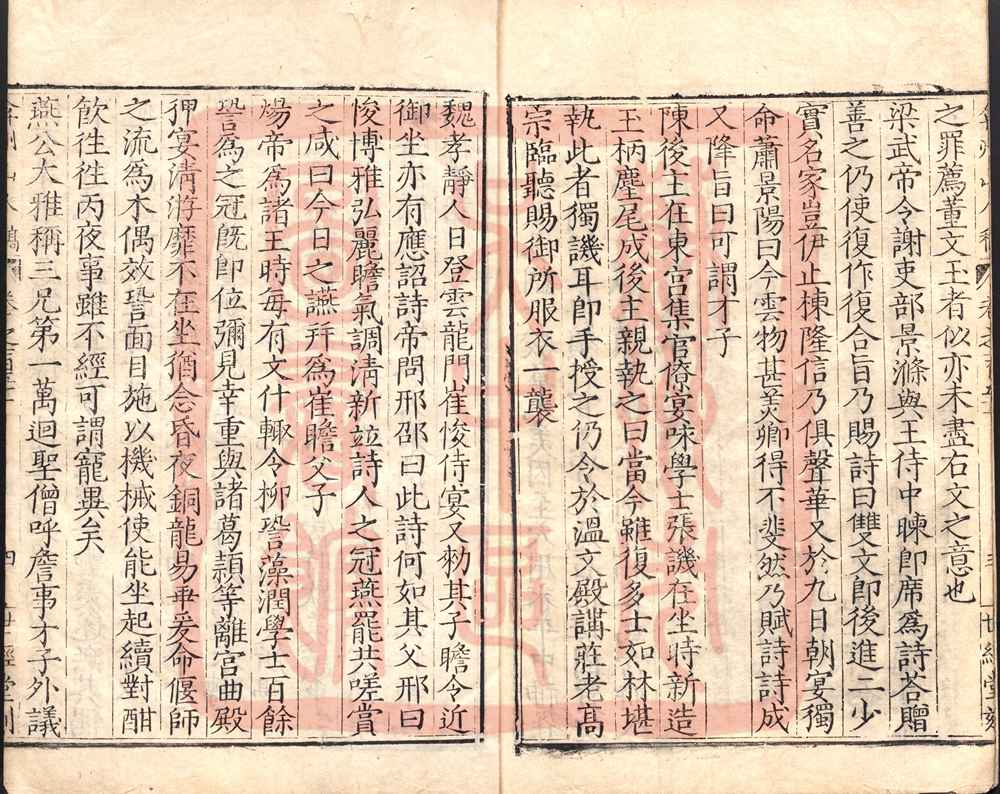 之罪薦董文王者似亦未盡右文之意也
梁武帝令謝吏部景滌與王侍中暕卽席爲詩荅贈
善之仍使復作復合旨乃賜詩曰雙文卽後進二少
實名家豈伊止棟隆信乃俱聲華又於九日朝宴獨
命蕭景陽曰今雲物甚羙卿得不斐然乃賦詩詩成
又降旨曰可謂才子
陳後主在東宮集官僚宴味學士張譏在坐時新造
玉柄麈尾成後主親執之曰當今雖復多士如林堪
執此者獨譏耳卽手授之仍令於溫文殿講莊老高
宗臨聽賜御所服衣一襲
魏孝靜人日登雲龍門崔㥄侍宴又勑其子瞻令近
御坐亦有應詔詩帝問邢邵曰此詩何如其父邢曰
悛博雅弘麗瞻氣調淸新竝詩人之冠燕罷共嗟賞
之咸曰今日之讌幷爲崔瞻父子
煬帝爲諸王時每有文什輒令柳䛒藻潤學士百餘
䛒爲之冠旣卽位彌見幸重與諸葛頴等離宮曲殿
狎宴淸游靡不在坐猶念昏夜銅龍易乖爰命偃師
之流爲木偶效䛒面目施以機械使能坐起續對酣
飮徃徃丙夜事雖不經可謂寵異矣
燕公大雅稱三兄第一萬迴聖僧呼詹事才子外議
四
世經堂刻